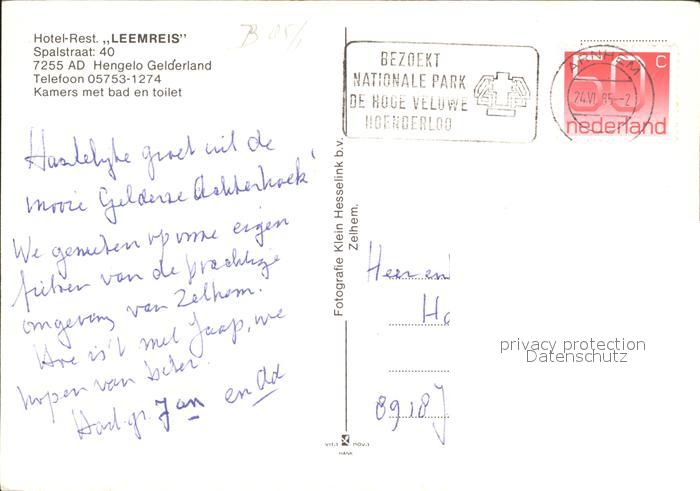 Hotel-Rest. „LEEMREIS"
Spalstraat: 40
7255 AD Hengelo Gelderland
Telefoon 05753-1274
Kamers met bad en toilet
BEZOEKT
NATIONALE PARK
DE HOGE VELUWE
HOENDERLOO
ARNHEM
24.VI.85.-2
50 C
nederland
Hartelijke groet uit de
mooie Gelderse Achterhoek'
We genieten op onze eigen
fietsen van de prachtige
omgeving van Zelhem.
Hoe is 't met Jaap, we
hopen van beter.
Hart. gr. Jan en Ad
Fotografie Klein Hesselink b.v.
Zelhem.
Heer en
Ha
8918 J
vita nova
HANK
privacy protection
Datenschutz